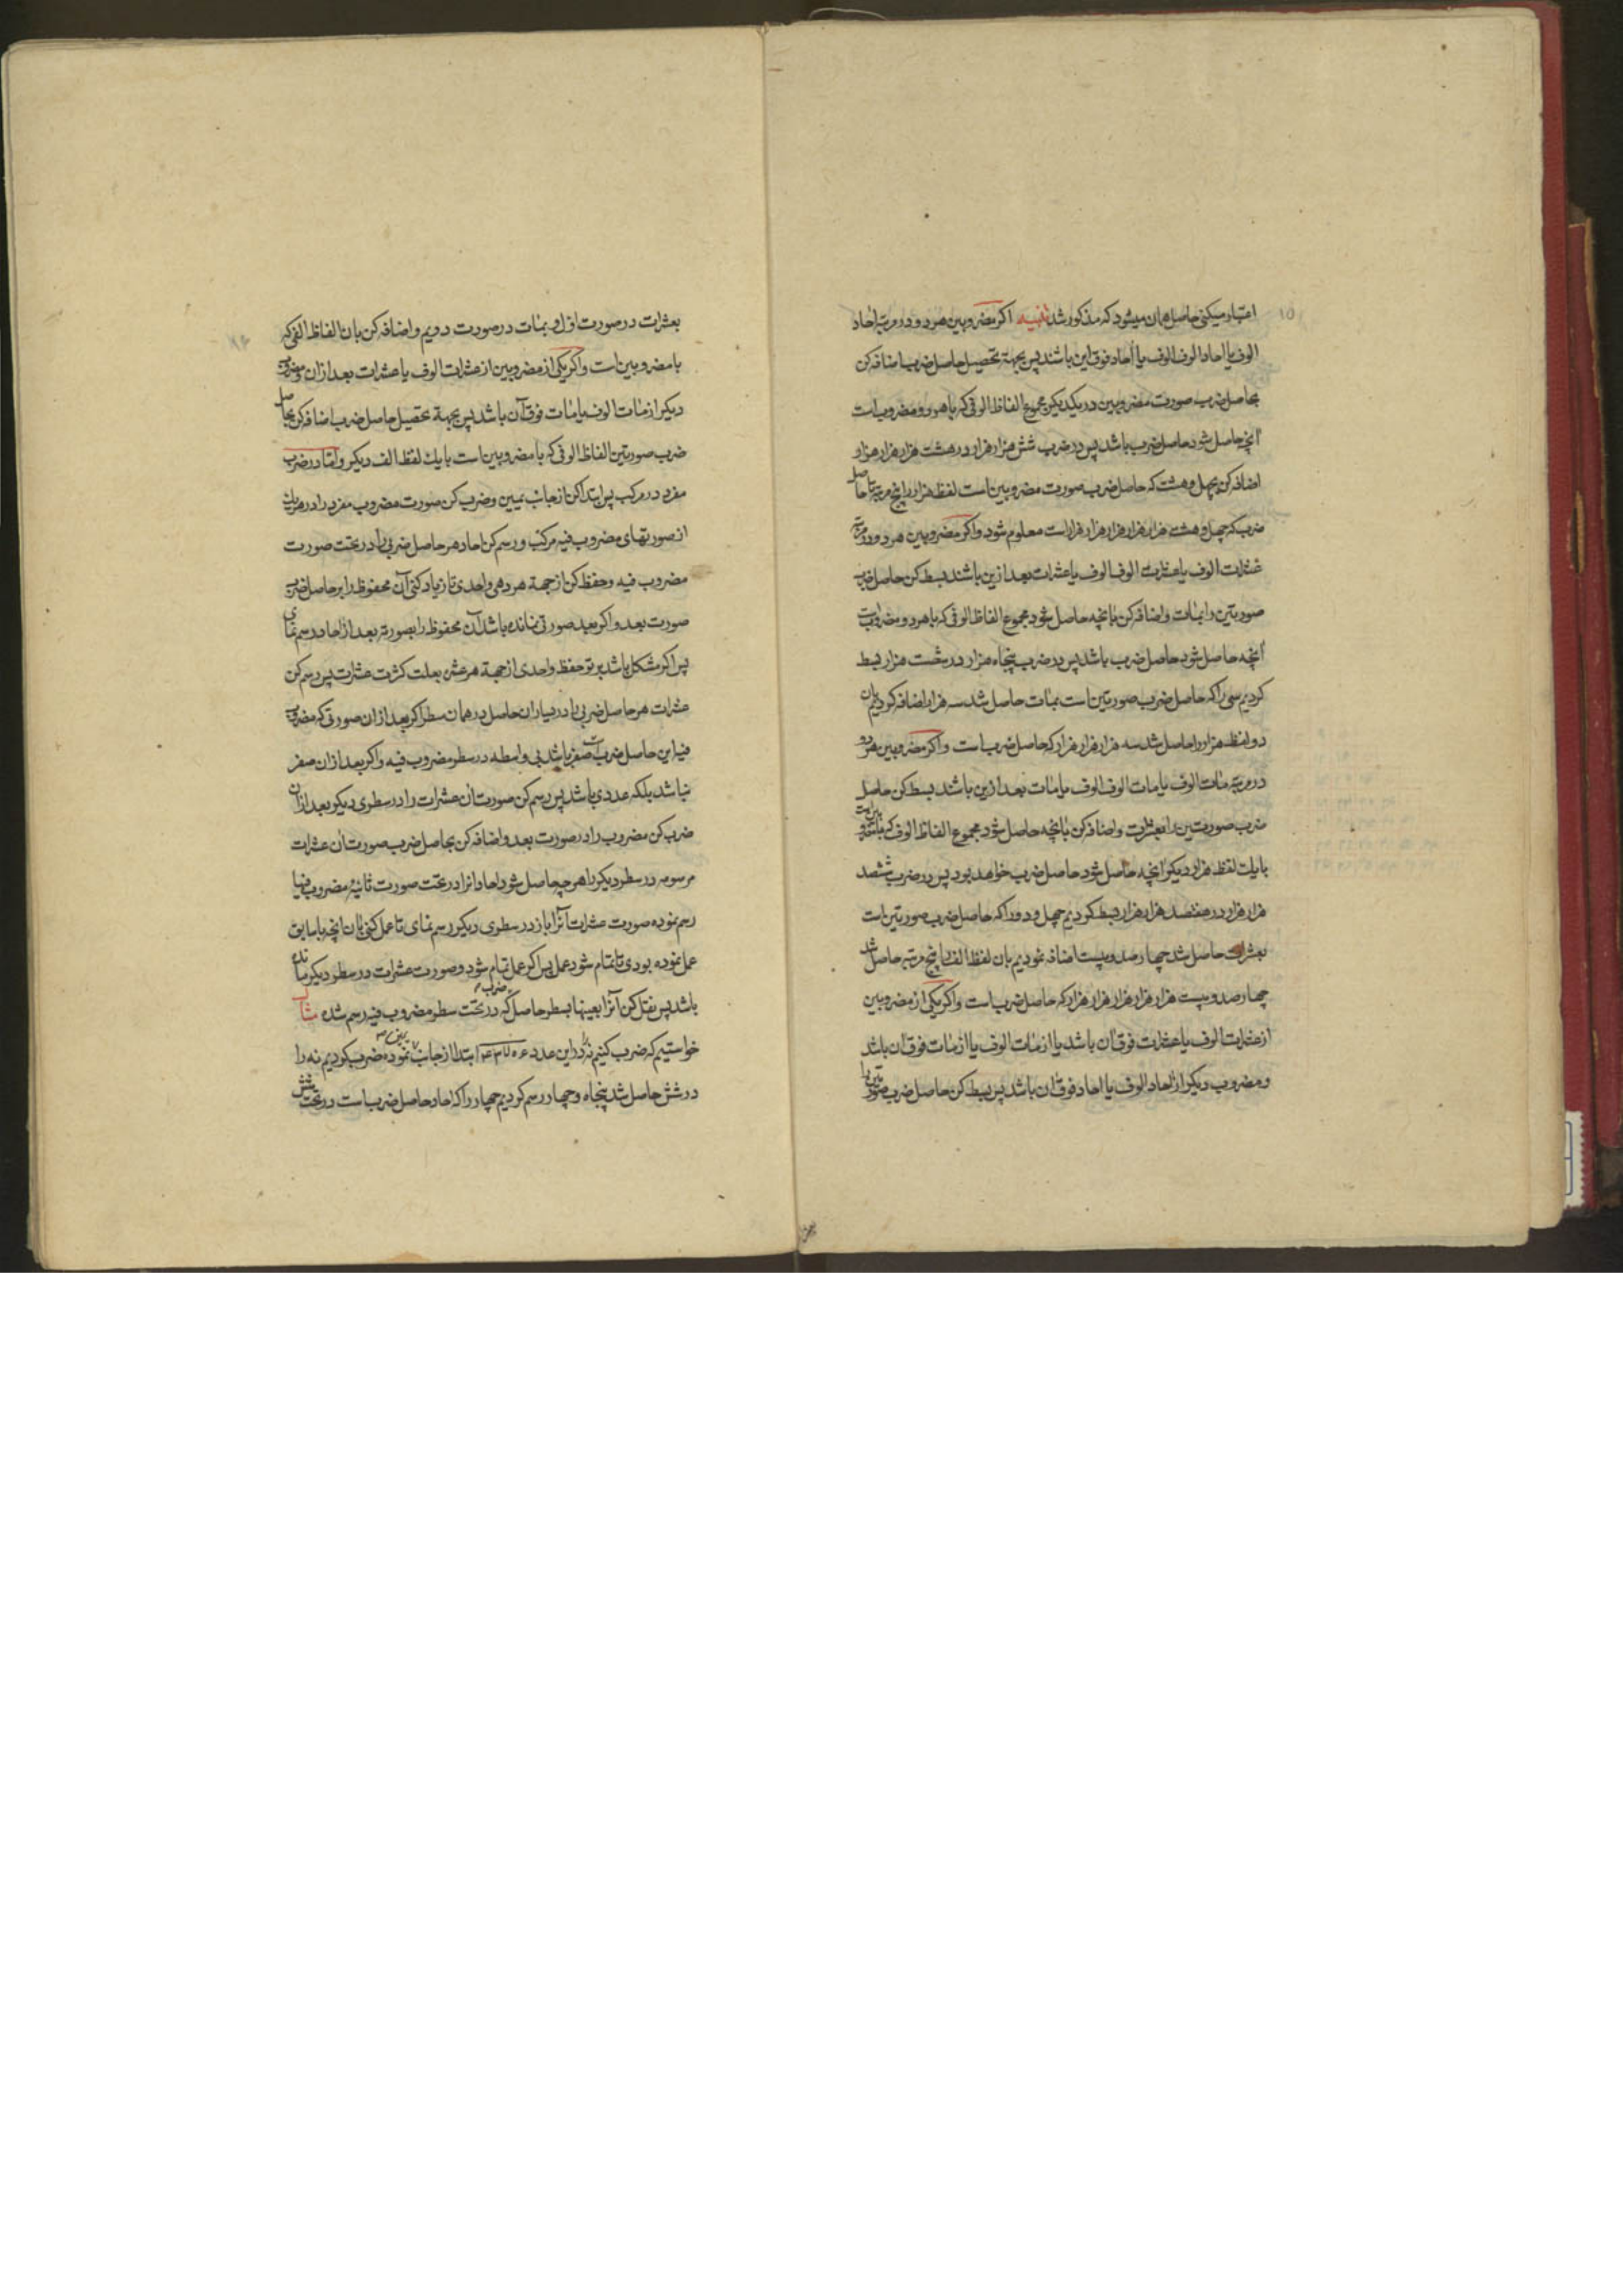 اعتبار میکنی حاصل همان میشود که مذکور شد تنبیه اکر مضروبین هر دو در مرتبه احاد
الوف یا احاد الوف الوف یا احاد فوق این باشند پس بجهة تحصیل حاصل ضرب اضافه کن
بحاصل ضرب صورت مضروبین در یکدیکر مجموع الفاظ الوفی که با هر دو مضروبست
آنچه حاصل شود حاصل ضرب باشد پس در ضرب شش هزار هزار در هشت هزار هزار هزار
اضافه کن بچهل و هشت که حاصل ضرب صورت مضروبین است لفظ هزار را پنج مرتبه تا حاصل
ضرب که چهل و هشت هزار هزار هزار هزار هزار است معلوم شود و اکر مضروبین هر دو در مرتبه
عشرات الوف یا عشرات الوف الوف یا عشرات بعد ازین باشند بسط کن حاصل ضرب
صورتین را بمئات و اضافه کن بانچه حاصل شود مجموع الفاظ الوفی که با هر دو مضروبست
آنچه حاصل شود حاصل ضرب باشد پس در ضرب پنجاه هزار در شصت هزار بسط
کردیم سی را که حاصل ضرب صورتین است بمئات حاصل شد سه هزار اضافه کردیم بان
دو لفظ هزار را حاصل شد سه هزار هزار هزار که حاصل ضرب است و اکر مضروبین هر دو
در مرتبه مئات الوف یا مئات الوف الوف یا مئات بعد ازین باشند بسط کن حاصل
ضرب صورتین را بعشرات و اضافه کن بانچه حاصل شود مجموع الفاظ الوف که با مضروبین است
با یک لفظ هزار دیکر آنچه حاصل شود حاصل ضرب خواهد بود پس در ضرب ششصد
هزار هزار در هفتصد هزار هزار بسط کردیم چهل و دو را که حاصل ضرب صورتین است
بعشرات حاصل شد چهارصد و بیست اضافه نمودیم بان لفظ الف را پنج مرتبه حاصل شد
چهارصد و بیست هزار هزار هزار هزار هزار که حاصل ضرب است و اکر یکی از مضروبین
از عشرات الوف یا عشرات فوق آن باشد یا از مئات الوف یا از مئات فوق آن باشد
و مضروب دیکر از احاد الوف یا احاد فوق ان باشد پس بسط کن حاصل ضرب صورتین را
بعشرات در صورت اول و بمئات در صورت دویم و اضافه کن بان الفاظ الفی که
با مضروبین است و اکر یکی از مضروبین از عشرات الوف یا عشرات بعد از ان و مضروب
دیکر از مئات الوف یا مئات فوق آن باشد پس بجهة تحصیل حاصل ضرب اضافه کن بحاصل
ضرب صورتین الفاظ الوفی که با مضروبین است با یک لفظ الف دیکر و اما در ضرب
مفرد در مرکب پس ابتدا کن از جانب یمین و ضرب کن صورت مضروب مفرد را در هر یک
از صورتهای مضروب فیه مرکب و رسم کن احاد هر حاصل ضربی را در تحت صورت
مضروب فیه و حفظ کن از جهة هر دهی واحدی تا زیاد کنی آن محفوظ را بر حاصل ضرب
صورت بعد و اکر بعد صورتی نمانده باشد آن محفوظ را بصورته بعد از احاد رسم نمای
پس اکر مشکل باشد بر تو حفظ واحدی از جهة هر عشره بعلت کثرت عشرات پس رسم کن
عشرات هر حاصل ضربی را در یسار ان حاصل در همان سطر اکر بعد از ان صورتی که مضروب
فیه این حاصل ضربست صفر باشد بی واسطه در سطر مضروب فیه و اکر بعد از ان صفر
نباشد بلکه عددی باشد پس رسم کن صورت ان عشرات را در سطری دیکر بعد از ان
ضرب کن مضروب را در صورت بعد و اضافه کن بحاصل ضرب صورت ان عشرات
مرسومه در سطر دیکر را هر چه حاصل شود احاد انرا در تحت صورت ثانیهٔ مضروب فیها
رسم نموده صورت عشرات آنرا باز در سطری دیکر رسم نمای تا عمل کنی بان انچه با سابق
عمل نموده بودی تا تمام شود عمل پس اکر عمل تمام شود و صورت عشرات در سطر دیکر مانده
باشد پس نقل کن آنرا بعینها بسطر حاصل ضرب که در تحت سطر مضروب فیه رسم شده مثال
خواستیم که ضرب کنیم نه را در این عدد ابتدا از جانب نموده ضرب کردیم نه را
در شش حاصل شد پنجاه و چهار رسم کردیم چهار را که احاد حاصل ضرب است در تحت شش